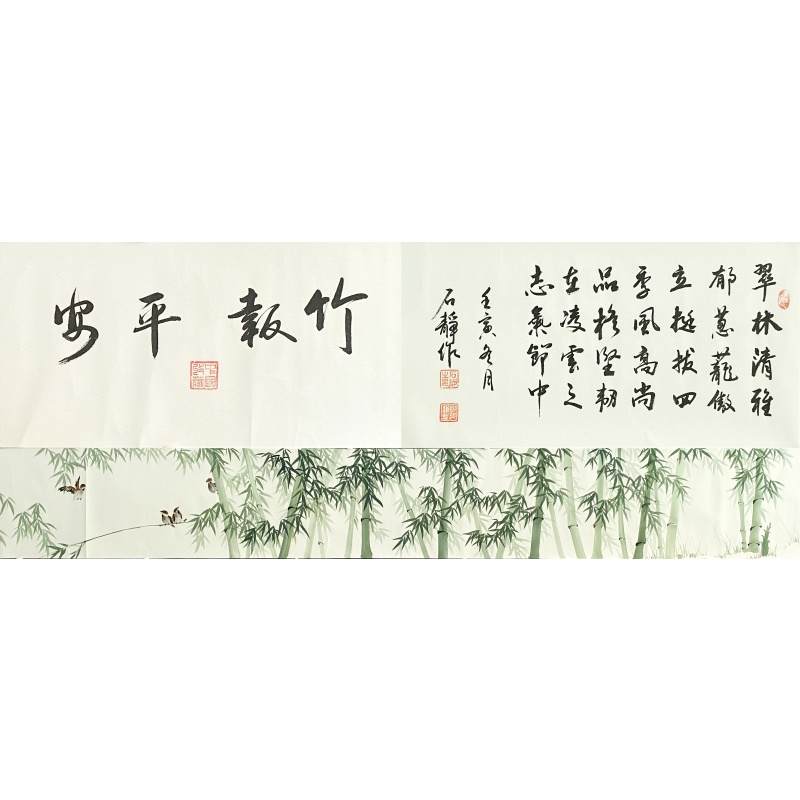 竹報平安
翠林清雅
郁葱蘢傲
立挺拔四
季風高尚
品格堅韌
在凌雲之
志氣節中
壬寅冬月
石靜作